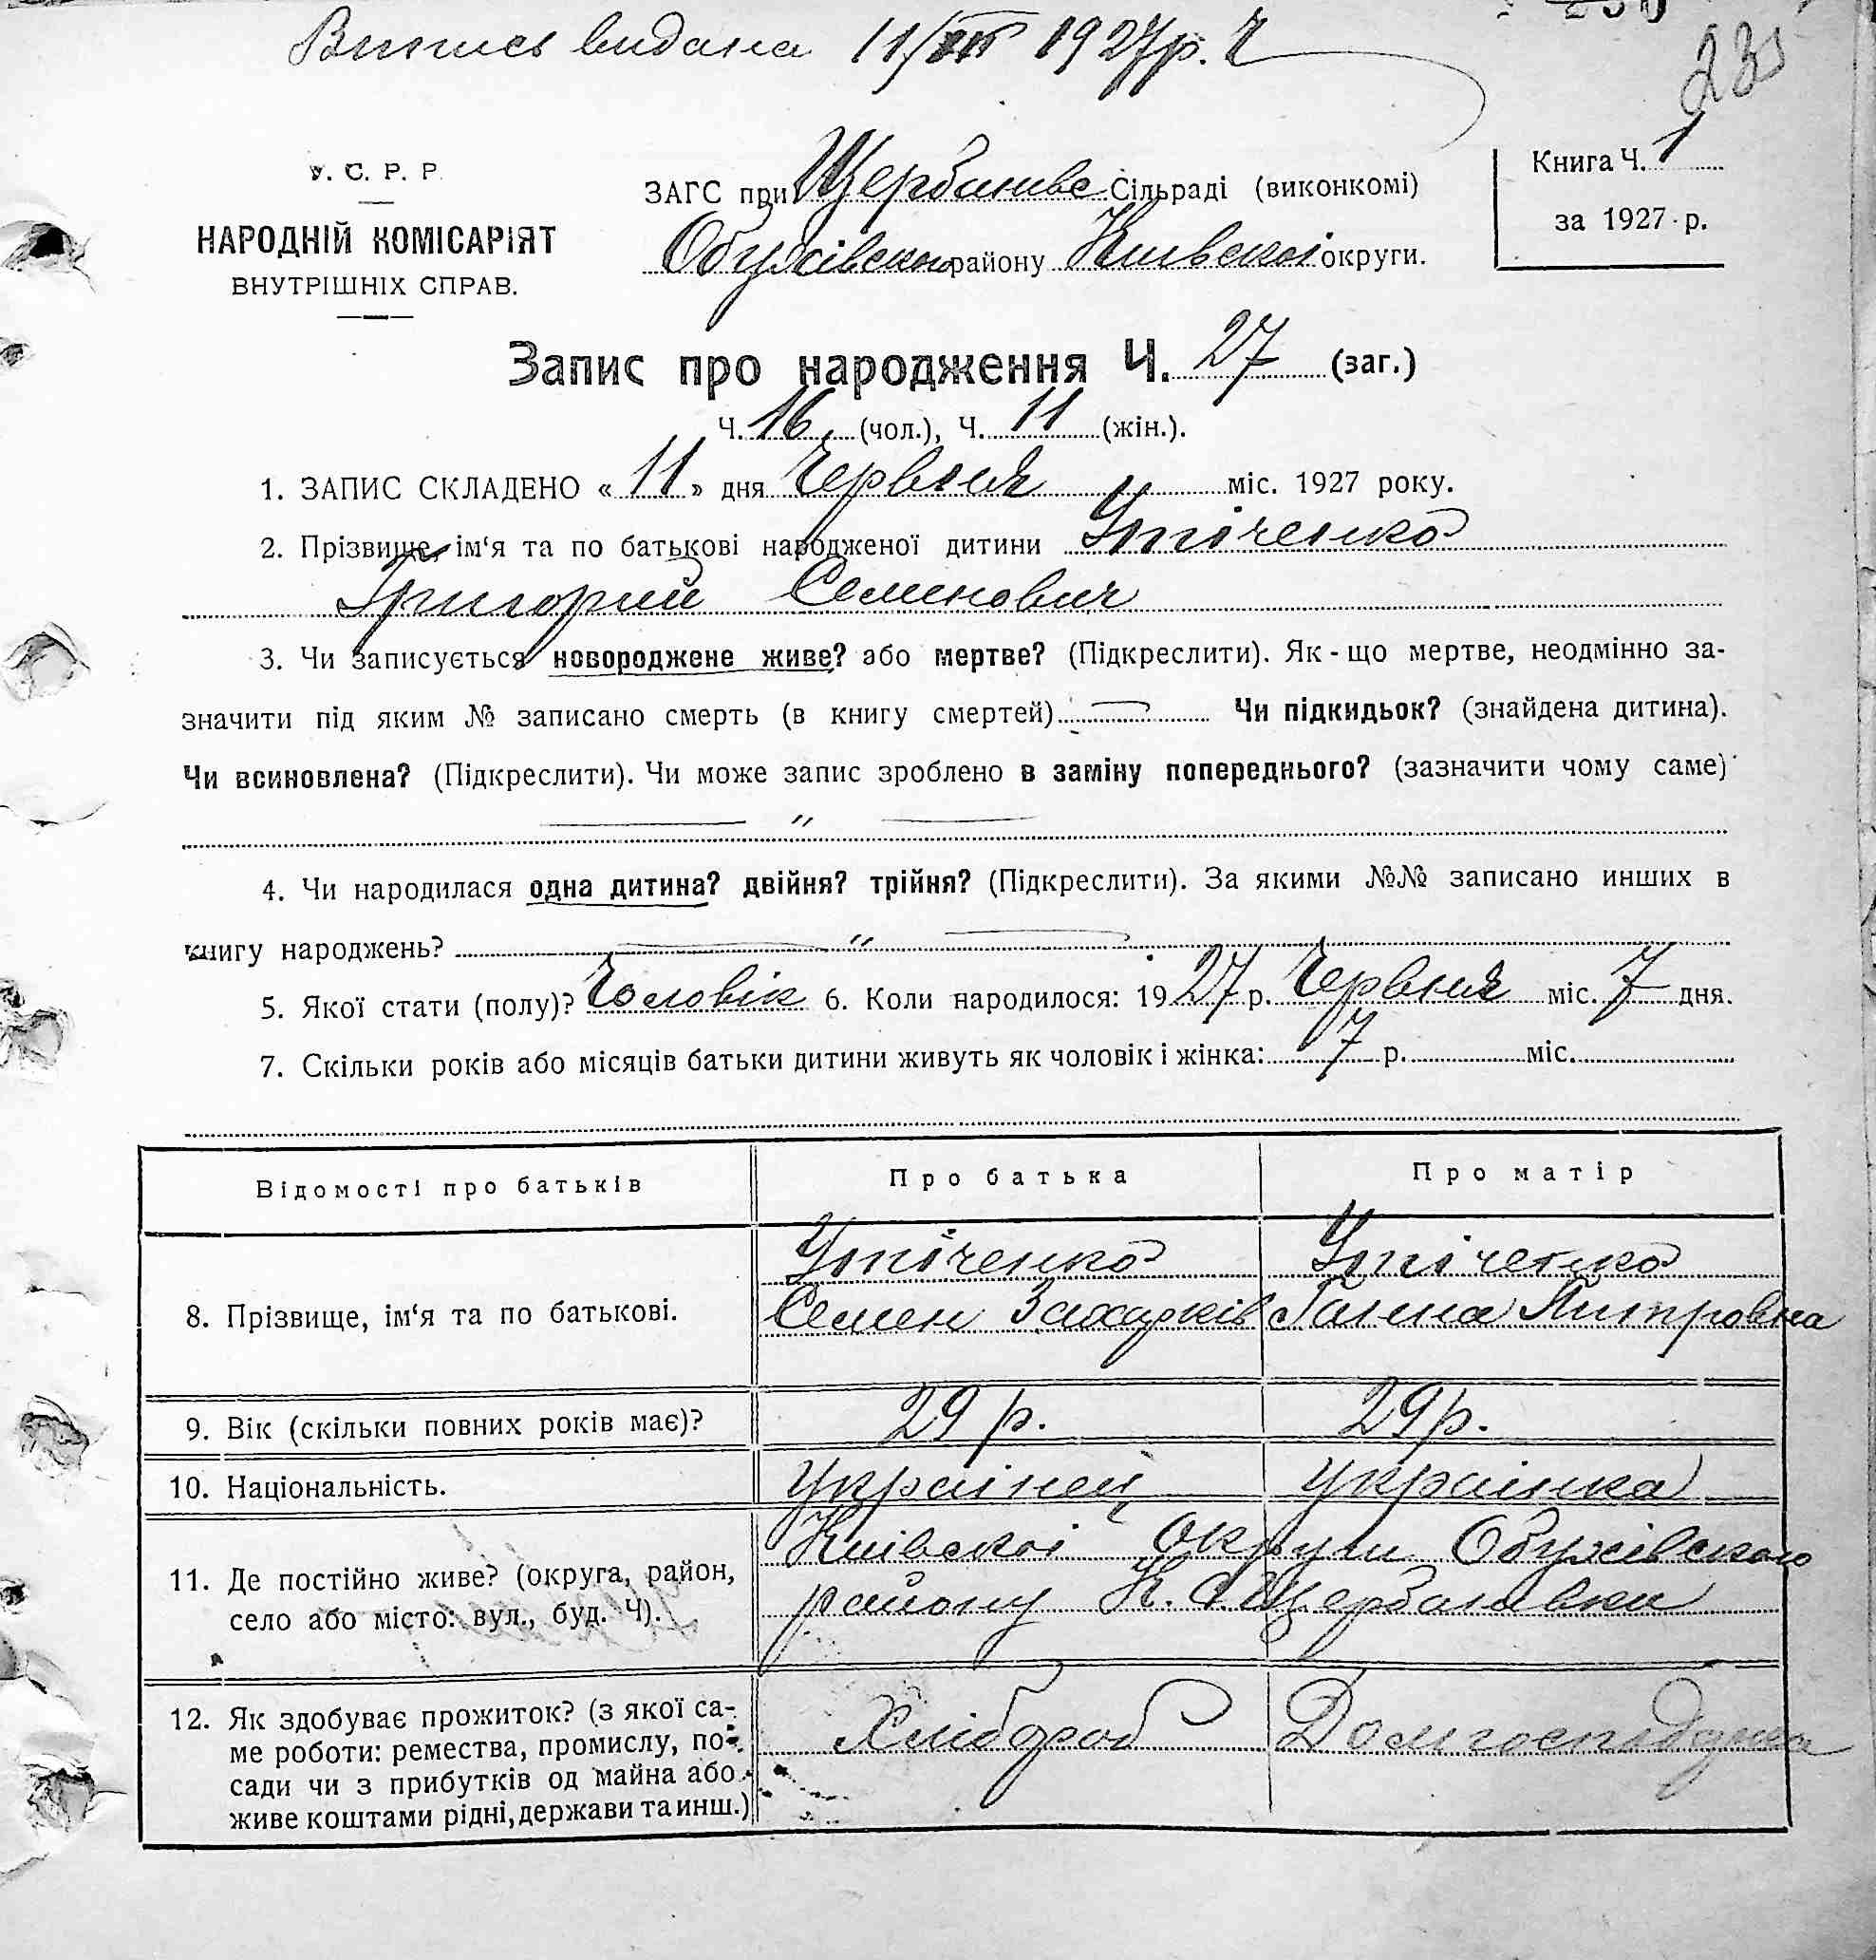 Випись видана 11/VII 1927 р.
235
У. С. Р. Р.
НАРОДНІЙ КОМІСАРІЯТ
ВНУТРІШНІХ СПРАВ.
ЗАГС при Щербанівс Сільраді (виконкомі)
Обухівского району Київскоі округи.
Книга Ч. 1
за 1927 р.
Запис про народження Ч. 27 (заг.)
Ч. 16 (чол.), Ч. 11 (жін.).
1. ЗАПИС СКЛАДЕНО « 11 » дня Червня міс. 1927 року.
2. Прізвище, ім‘я та по батькові народженої дитини Упіченко
Григорий Семенович
3. Чи записується новороджене живе? або мертве? (Підкреслити). Як-що мертве, неодмінно за-
значити під яким № записано смерть (в книгу смертей) — Чи підкидьок? (знайдена дитина).
Чи всиновлена? (Підкреслити). Чи може запис зроблено в заміну попереднього? (зазначити чому саме)
— „ —
4. Чи народилася одна дитина? двійня? трійня? (Підкреслити). За якими №№ записано инших в
книгу народжень? — „ —
5. Якої стати (полу)? Чоловік 6. Коли народилося: 1927 р. Червня міс. 7 дня.
7. Скільки років або місяців батьки дитини живуть як чоловік і жінка: 7 р. міс.
Відомості про батьків Про батька Про матір
8. Прізвище, ім‘я та по батькові.
Упіченко Упіченко
Семен Захарків Ганна Питровна
9. Вік (скільки повних років має)? 29 р. 29 р.
10. Національність. Українец Українка
11. Де постійно живе? (округа, район,
село або місто: вул., буд. Ч).
Київскоі округи Обухівского
району К. Щербанівки
12. Як здобуває прожиток? (з якої са-
ме роботи: ремества, промислу, по-
сади чи з прибутків од майна або
живе коштами рідні, держави та инш.)
Хлібороб Домгосподарка